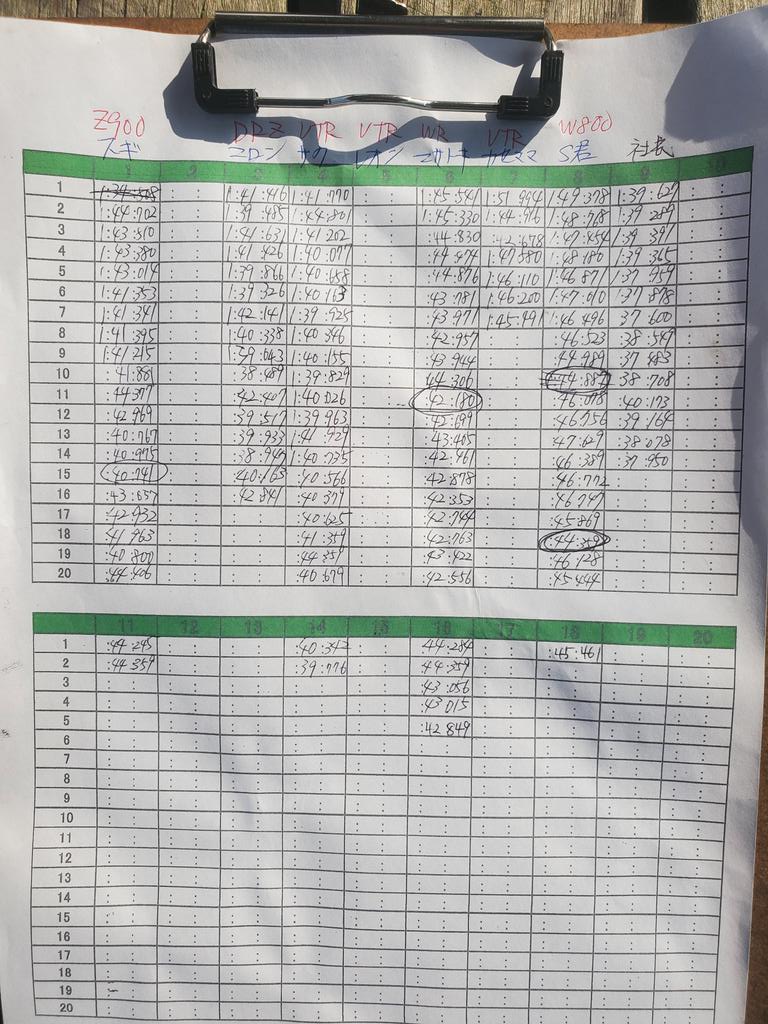 Z900 DRZ VTR VTR WR VTR W800
スギ マロン サク レオン マサトキ S君 社長
1 2 3 4 5 6 7 8 9 10
1 1:39:508 : : 1:41:416 1:41:770 : : 1:45:541 1:51:994 1:49:378 1:39:627 : :
2 1:44:702 : : 1:39:485 1:44:801 : : 1:45:330 1:44:976 1:48:718 1:39:289 : :
3 1:43:510 : : 1:41:631 1:41:202 : : :44:830 :42:678 1:47:454 1:39:397 : :
4 1:43:380 : : 1:41:426 1:40:077 : : :44:474 1:47:580 1:48:180 1:39:365 : :
5 1:43:014 : : 1:39:866 1:40:658 : : :44:876 1:46:110 1:46:871 1:37:959 : :
6 1:41:353 : : 1:39:326 1:40:163 : : :43:781 1:46:200 1:47:010 1:37:878 : :
7 1:41:341 : : 1:42:141 1:39:925 : : :43:971 1:45:491 1:46:496 37:600 : :
8 1:41:395 : : 1:40:338 1:40:346 : : :42:957 : : :46:523 38:549 : :
9 1:41:215 : : 1:39:043 1:40:155 : : :43:944 : : :44:989 37:483 : :
10 :41:881 : : 38:489 1:39:829 : : :44:306 : : :44:887 38:708 : :
11 :44:377 : : :42:407 1:40:026 : : :42:180 : : :46:078 :40:173 : :
12 :42:969 : : :39:517 1:39:963 : : :42:699 : : :46:756 :39:164 : :
13 :40:767 : : :39:933 1:41:929 : : :43:405 : : :47:029 :38:078 : :
14 :40:975 : : :38:947 1:40:735 : : :42:461 : : :46:389 :37:950 : :
15 :40:741 : : :40:163 :40:566 : : :42:878 : : :46:772 : : : :
16 :43:637 : : :42:841 :40:379 : : :42:353 : : :46:747 : : : :
17 :42:932 : : : : :40:625 : : :42:744 : : :45:869 : : : :
18 :41:963 : : : : :41:359 : : :42:763 : : :44:359 : : : :
19 :40:800 : : : : :44:351 : : :43:422 : : :46:128 : : : :
20 :44:406 : : : : :40:679 : : :42:556 : : :45:444 : : : :
11 12 13 14 15 16 17 18 19 20
1 :44:245 : : : : :40:342 : : :44:284 : : :45:461 : : : :
2 :44:359 : : : : :39:776 : : :44:359 : : : : : : : :
3 : : : : : : : : : : :43:056 : : : : : : : :
4 : : : : : : : : : : :43:015 : : : : : : : :
5 : : : : : : : : : : :42:849 : : : : : : : :
6 : : : : : : : : : : : : : : : : : : : :
7 : : : : : : : : : : : : : : : : : : : :
8 : : : : : : : : : : : : : : : : : : : :
9 : : : : : : : : : : : : : : : : : : : :
10 : : : : : : : : : : : : : : : : : : : :
11 : : : : : : : : : : : : : : : : : : : :
12 : : : : : : : : : : : : : : : : : : : :
13 : : : : : : : : : : : : : : : : : : : :
14 : : : : : : : : : : : : : : : : : : : :
15 : : : : : : : : : : : : : : : : : : : :
16 : : : : : : : : : : : : : : : : : : : :
17 : : : : : : : : : : : : : : : : : : : :
18 : : : : : : : : : : : : : : : : : : : :
19 : : : : : : : : : : : : : : : : : : : :
20 : : : : : : : : : : : : : : : : : : : :